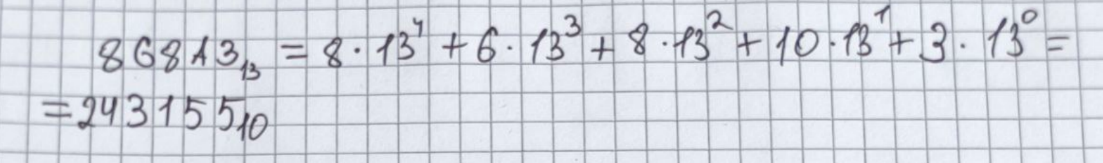 868A3₁₃ = 8·13⁴ + 6·13³ + 8·13² + 10·13¹ + 3·13⁰ =
= 243155₁₀